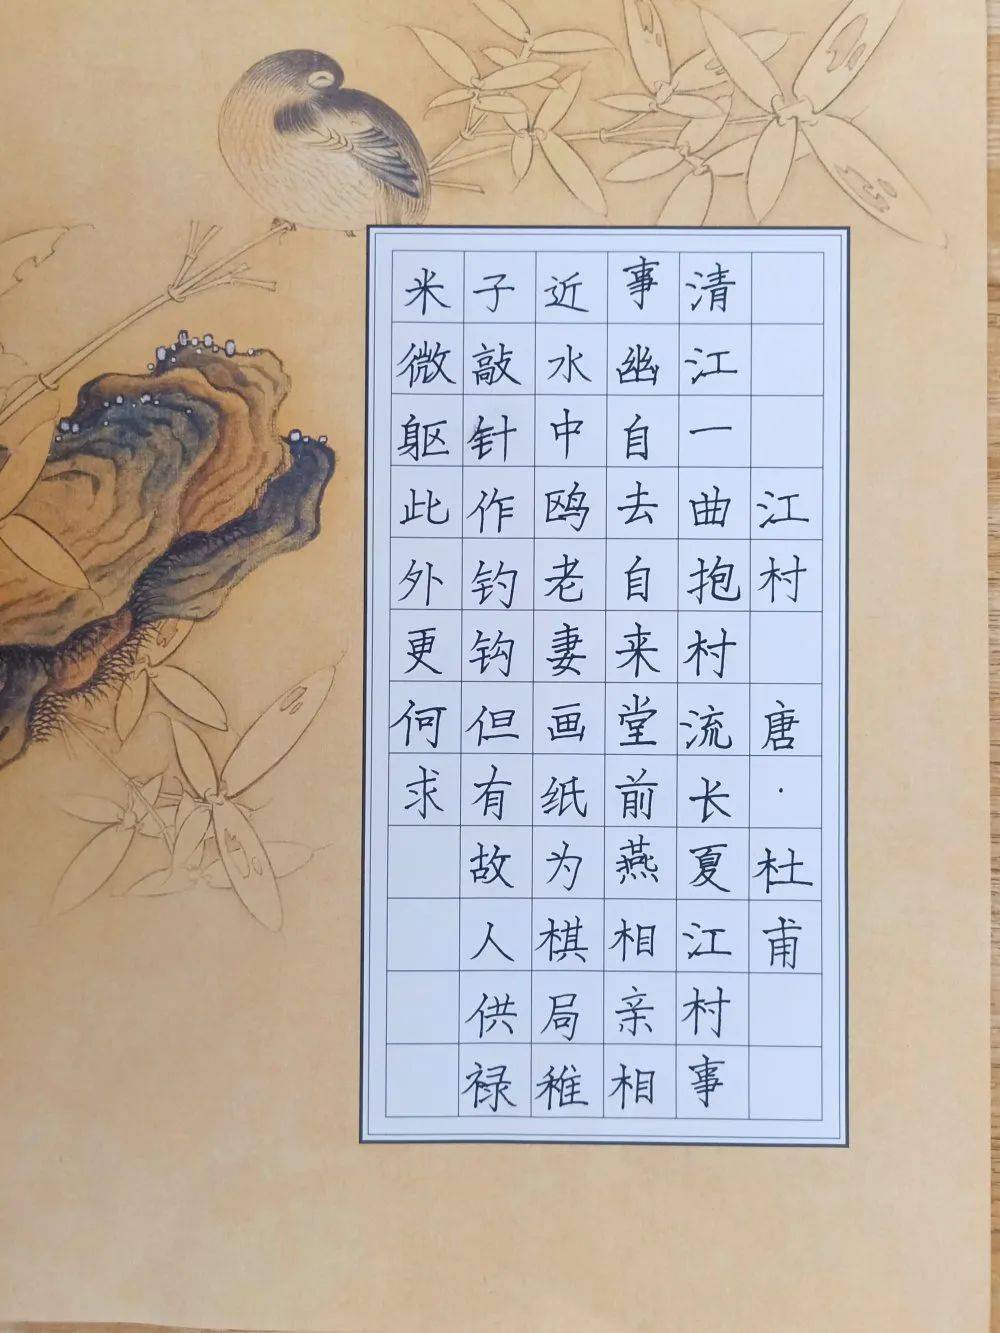 江村 唐·杜甫
清江一曲抱村流长夏江村事
事幽自去自来堂前燕相亲相
近水中鸥老妻画纸为棋局稚
子敲针作钓钩但有故人供禄
米微躯此外更何求